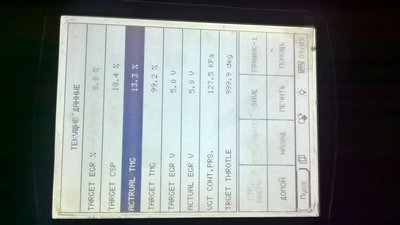 ТЕКУЩИЕ ДАННЫЕ
TARGET EGR % 0.0 %
TARGET CSP 18.4 %
ACTRUAL TMG 13.3 %
TARGET TMG 99.2 %
TARGET EGR V 5.0 V
ACTUAL EGR V 5.0 V
VGT CONT.PRS. 127.5 KPa
TRGET THROTLE 999.9 deg
СТР. ВВЕРХ SAVE ГРАФИК-1
ДОМОЙ НАЗАД ПЕЧАТЬ ПОМОЩЬ
Пуск 09:49